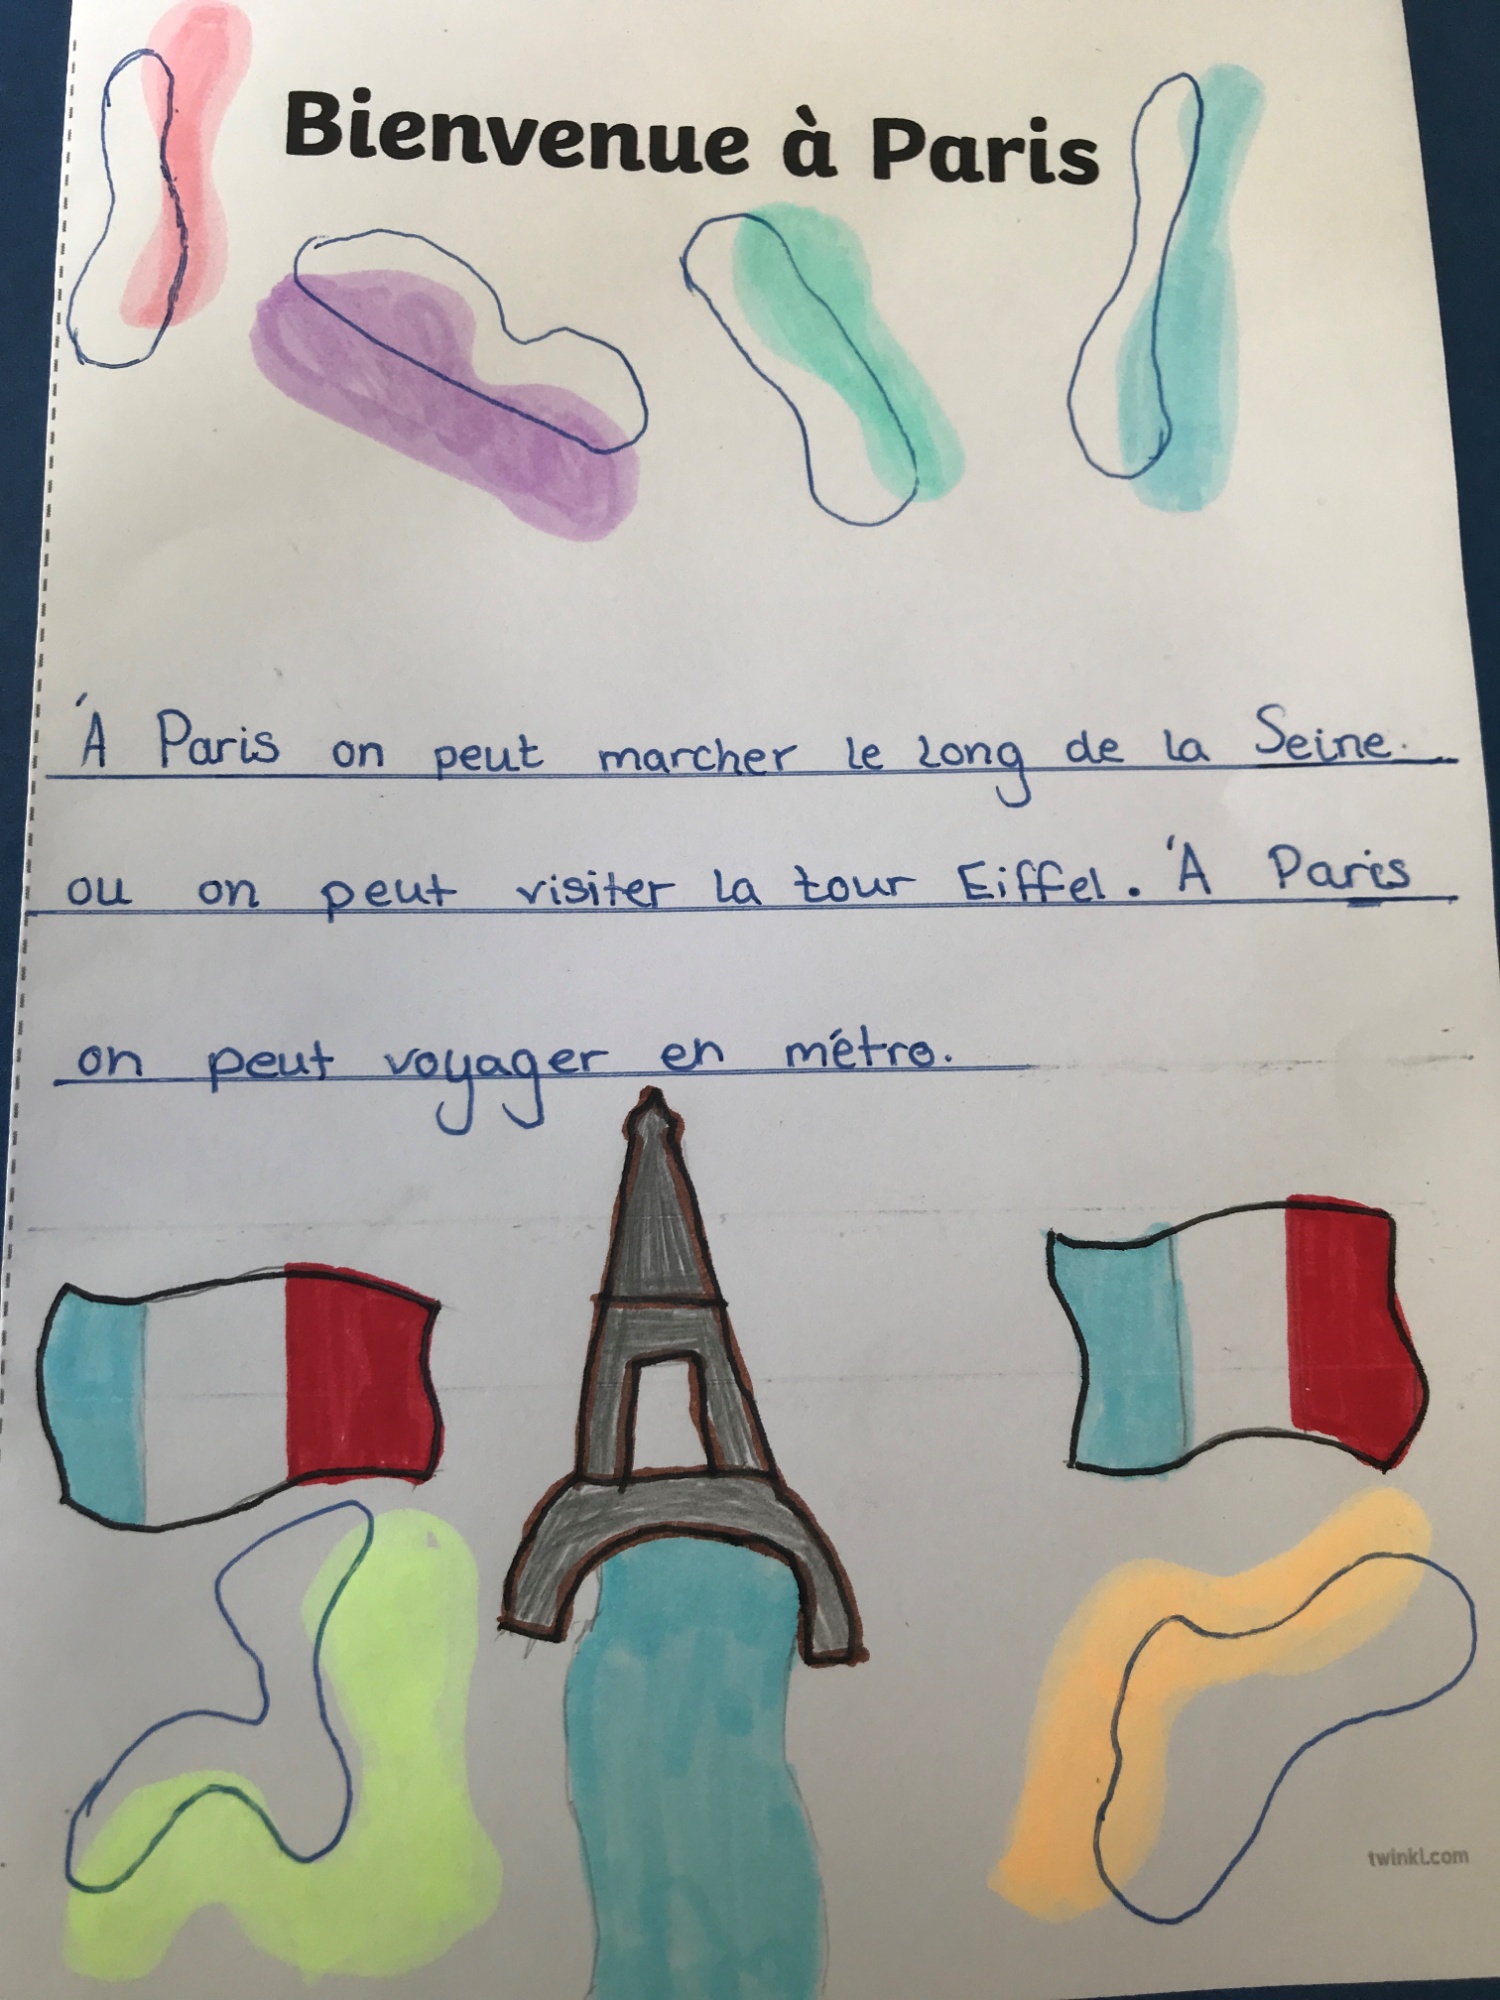 Bienvenue à Paris
Á Paris on peut marcher le long de la Seine.
ou on peut visiter la tour Eiffel. Á Paris
on peut voyager en métro.
twinkl.com